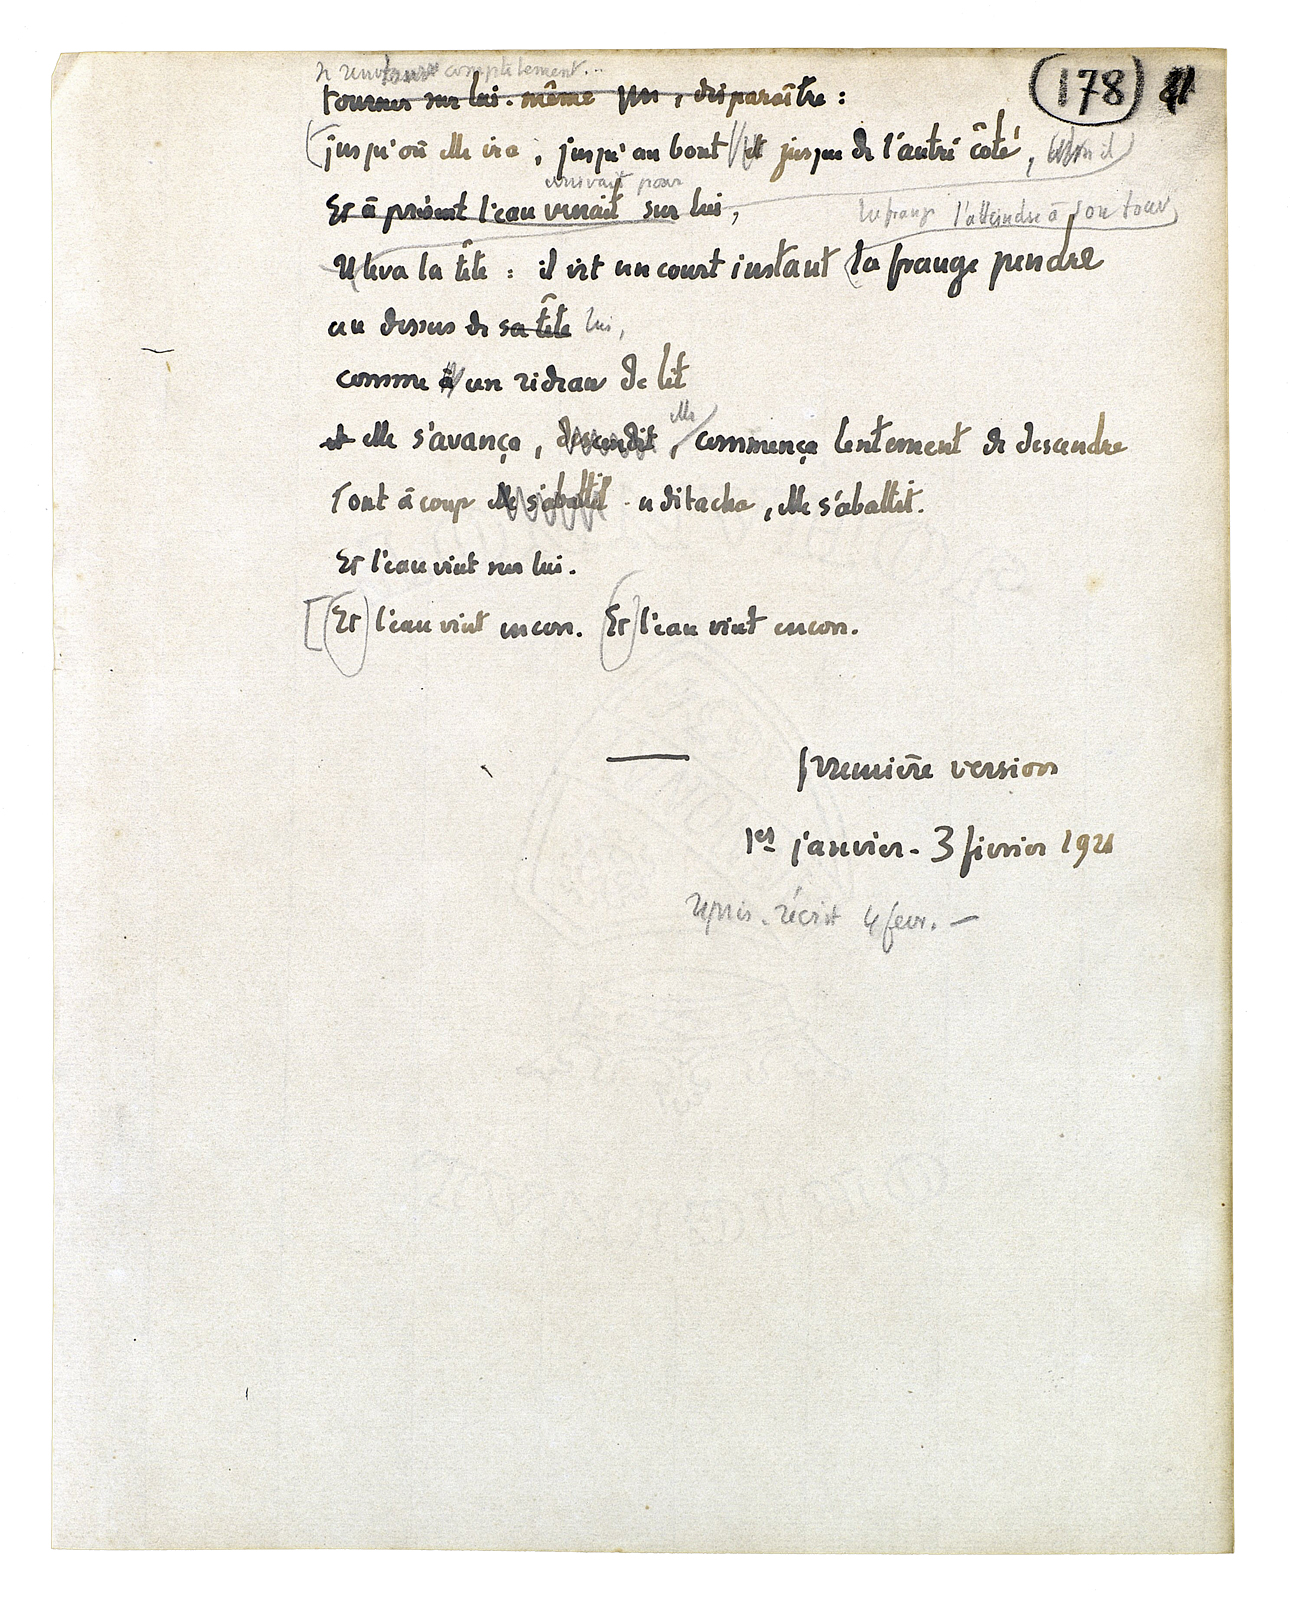 complètement...
(178)
tourner sur lui-même puis, disparaître :
(jusqu'où elle ira, jusqu'au bout et jusque de l'autre côté,
arrivait pour
Et à présent l'eau venait sur lui,
la frange l'atteindre à son tour,
Il leva la tête : il vit un court instant (la frange pendre
au dessus de sa tête lui,
comme à un rideau de lit
elle
et elle s'avança, descendit, commença lentement de descendre
Tout à coup elle s'abattit se détacha, elle s'abattit.
Et l'eau vint sur lui.
[(Et) l'eau vint encore. (Et) l'eau vint encore.
première version
1er janvier - 3 février 1921
repris. récrit 4 fevr. —